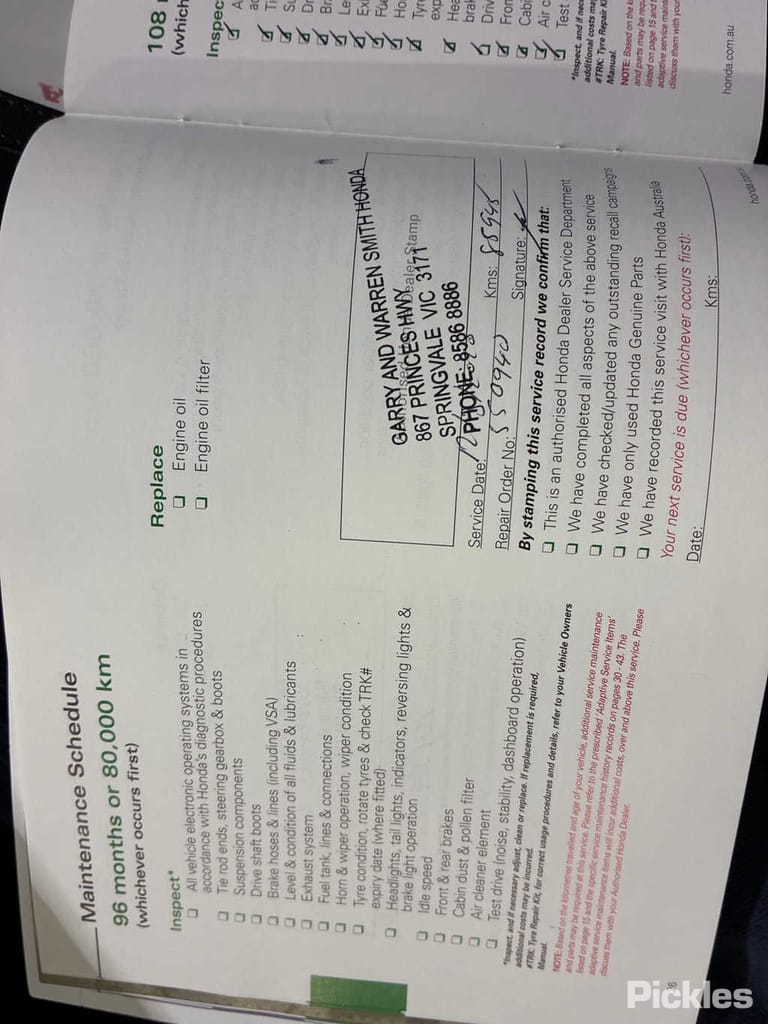 Maintenance Schedule
96 months or 80,000 km
(whichever occurs first)
Inspect*
All vehicle electronic operating systems in
accordance with Honda's diagnostic procedures
Tie rod ends, steering gearbox & boots
Suspension components
Drive shaft boots
Brake hoses & lines (including VSA)
Level & condition of all fluids & lubricants
Exhaust system
Fuel tank, lines & connections
Horn & wiper operation, wiper condition
Tyre condition, rotate tyres & check TRK#
expiry date (where fitted)
Headlights, tail lights, indicators, reversing lights &
brake light operation
Idle speed
Front & rear brakes
Cabin dust & pollen filter
Air cleaner element
Test drive (noise, stability, dashboard operation)
*Inspect, and if necessary adjust, clean or replace. If replacement is required,
additional costs may be incurred.
#TRK: Tyre Repair Kit, for correct usage procedures and details, refer to your Vehicle Owners
Manual.
NOTE: Based on the kilometres travelled and age of your vehicle, additional service maintenance
and parts may be required at this service. Please refer to the prescribed 'Adaptive Service Items'
listed on page 15 and the specific service maintenance history records on pages 30 - 43. The
adaptive service maintenance items will incur additional costs, over and above this service. Please
discuss them with your Authorised Honda Dealer.
Replace
Engine oil
Engine oil filter
GARRY AND WARREN SMITH HONDA
867 PRINCES HWY
Dealer Stamp
SPRINGVALE VIC 3171
PHONE: 8586 8886
Service Date:
Kms: 88948
Repair Order No: 550940
Signature:
By stamping this service record we confirm that:
This is an authorised Honda Dealer Service Department
We have completed all aspects of the above service
We have checked/updated any outstanding recall campaigns
We have only used Honda Genuine Parts
We have recorded this service visit with Honda Australia
Your next service is due (whichever occurs first):
Date:
Kms:
108
(which
Inspec
Ti
Su
Dr
Br
Le
Ex
Fue
Ho
Tyre
exp
Hea
brak
Driv
Fron
Cabi
Air c
Test
*Inspect, and if nece
additional costs may
#TRK: Tyre Repair Kit
Manual.
NOTE: Based on the k
and parts may be requ
listed on page 15 and t
adaptive service maint
discuss them with your
honda.com.au
Pickles